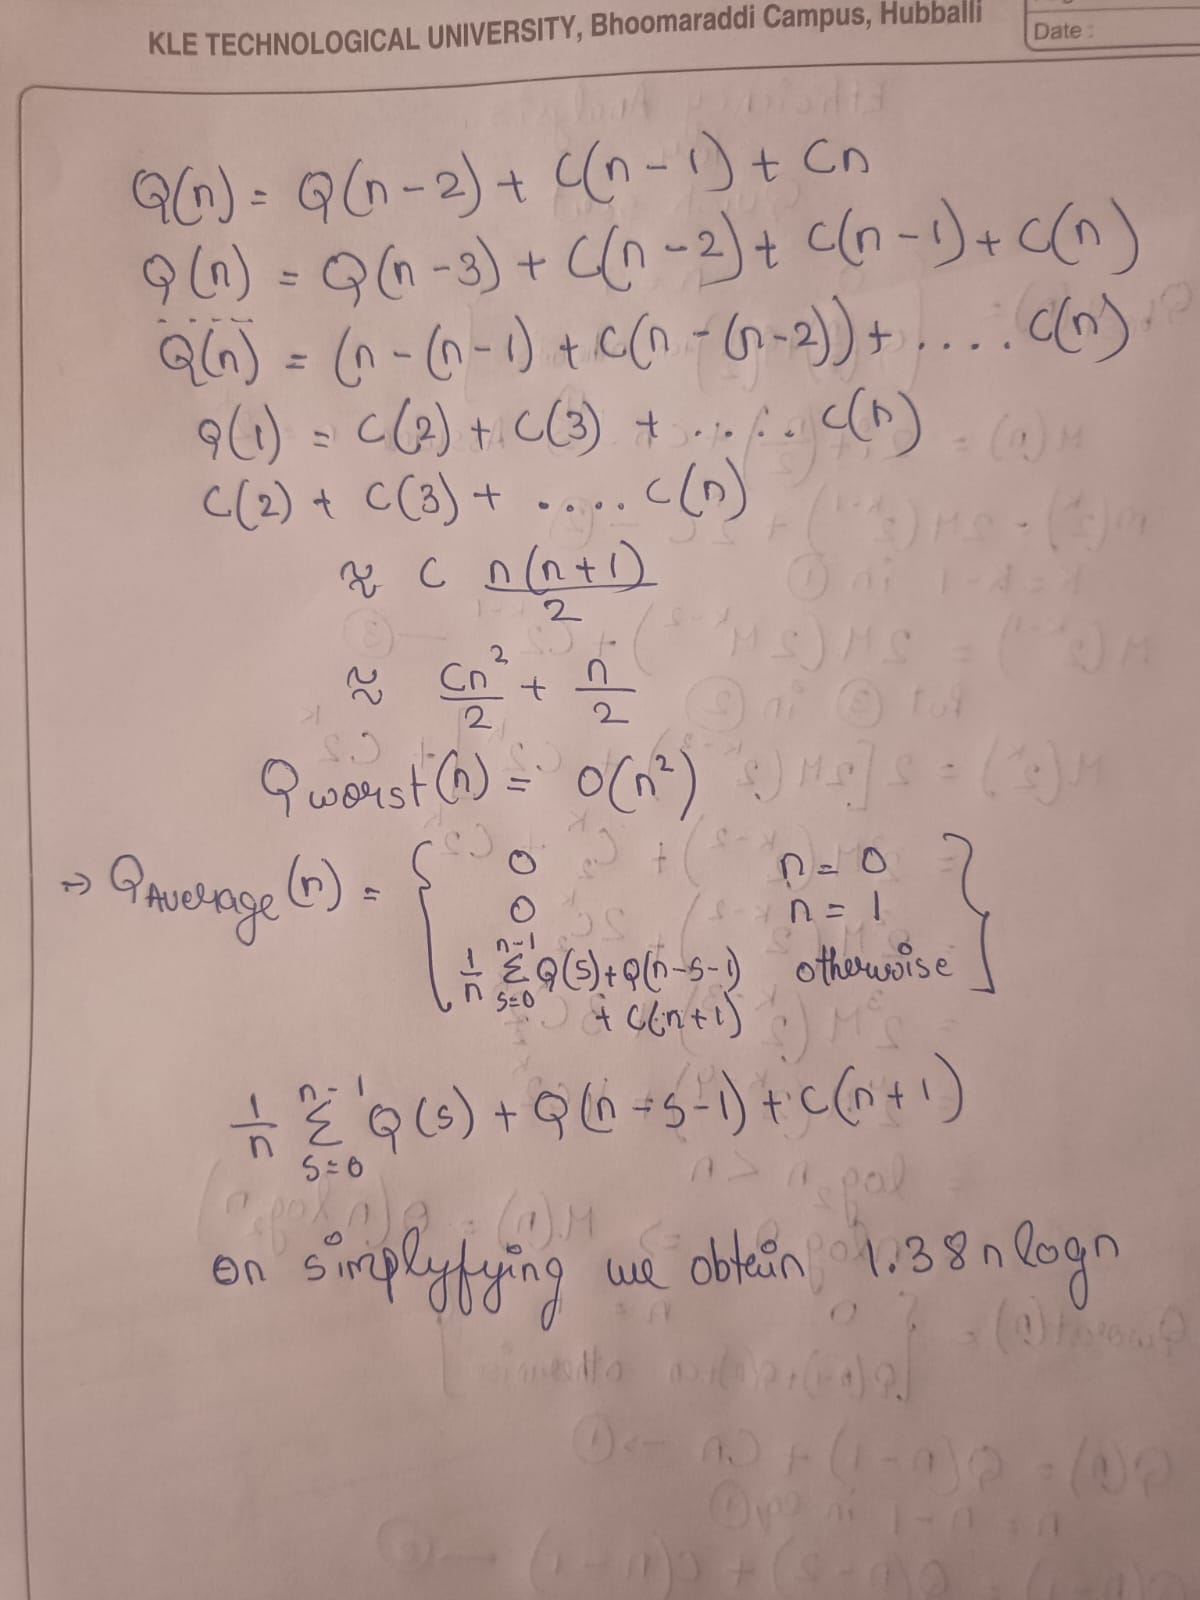 KLE TECHNOLOGICAL UNIVERSITY, Bhoomaraddi Campus, Hubballi
Date :
Q(n) = Q(n-2) + C(n-1) + Cn
Q(n) = Q(n-3) + C(n-2) + C(n-1) + C(n)
Q(n) = (n-(n-1) + C(n-(n-2)) + .... C(n)
Q(1) = C(2) + C(3) + ..... C(n)
C(2) + C(3) + .... C(n)
≈ C n(n+1)/2
≈ Cn²/2 + n/2
Qworst(n) = O(n²)
⇒ QAverage(n) = { 0 n = 0
0 n = 1
1/n Σ s=0 n-1 Q(s) + Q(n-s-1) otherwise }
+ C(n+1)
1/n Σ s=0 n-1 Q(s) + Q(n-s-1) + C(n+1)
on simplyfying we obtain 1.38 n log n